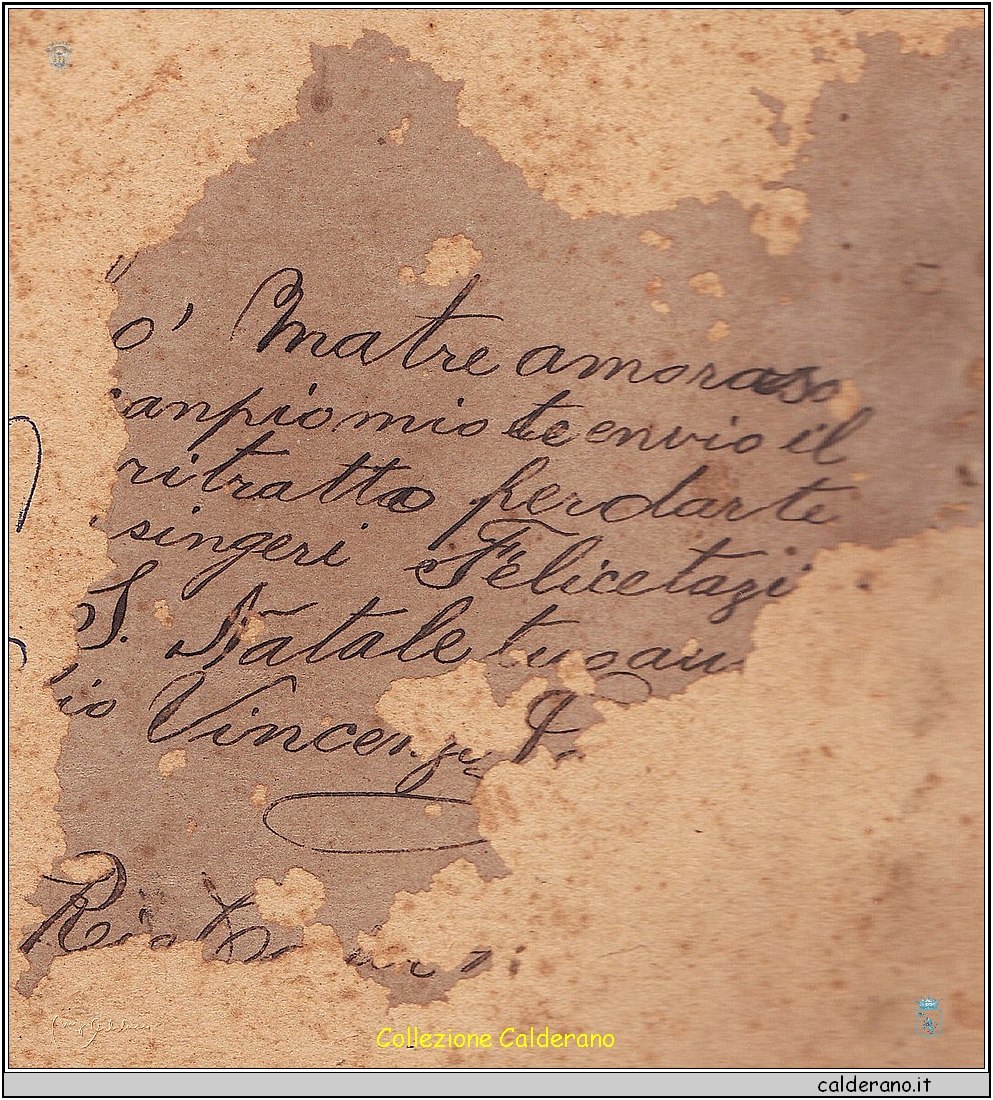 o' Matre amoraso
anpio mio te envio il
ritratto perdarte
singeri Felicetazi
S. Natale tuo
io Vincenzo
Rio
Collezione Calderano
calderano.it